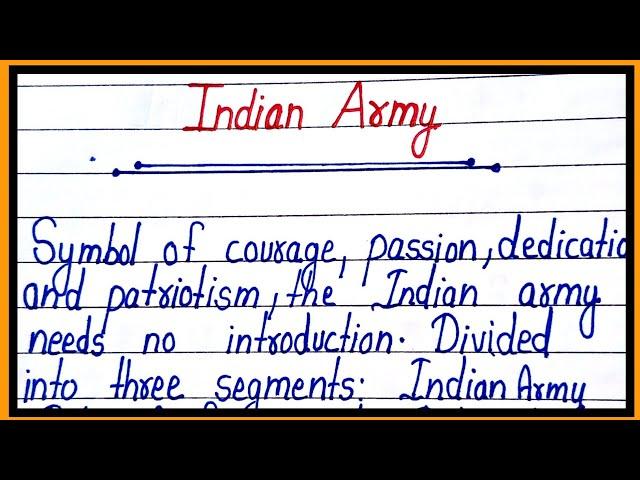 Indian Army
Symbol of courage, passion, dedicatio
and patriotism, the Indian army
needs no introduction. Divided
into three segments: Indian Army